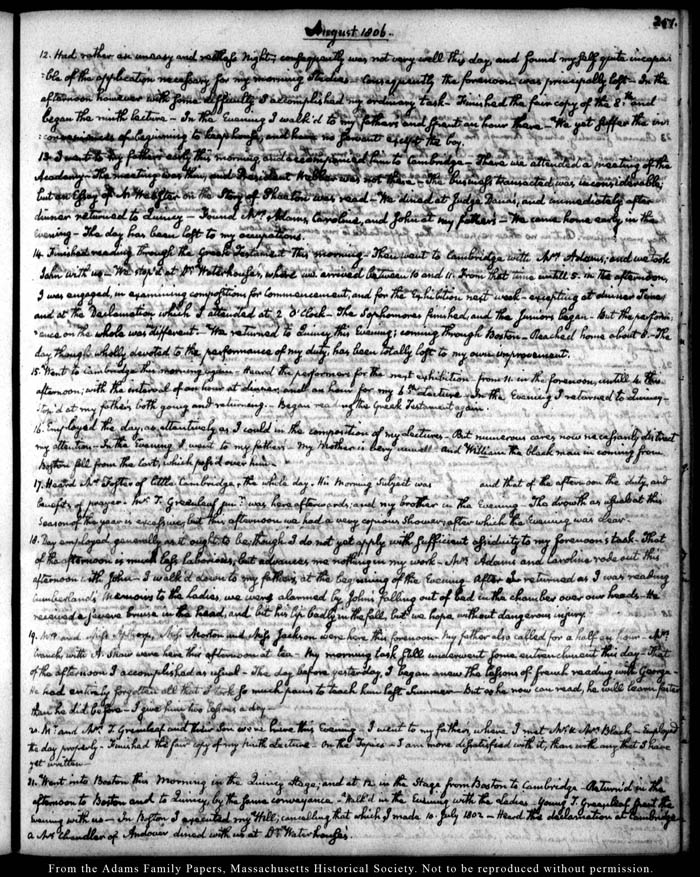 August 1806.
257.
12. Had rather an uneasy and restless night, consequently was not very well this day, and found myself quite incapa-
-ble of the application necessary for my morning Studies. Consequently the forenoon was principally lost. In the
afternoon however with some difficulty I accomplished my ordinary task. Finished the fair copy of the 8th and
began the ninth lecture. In the Evening I walk'd to my father's and spent an hour there. We yet suffer the in-
-conveniences of beginning to keep house, and have no servant except the boy.
13. I went to my father's early this morning, and accompanied him to Cambridge. There we attended a meeting of the
Academy. The meeting was thin, and President Webber was not there. The business transacted was inconsiderable;
but an Essay of Mr. Webster on the Story of Phaeton was read. We dined at Judge Dana's, and immediately after
dinner returned to Quincy. Found Mrs. Adams, Caroline, and John at my father's. We came home early in the
evening. The day has been lost to my occupations.
14. Finished reading through the Greek Testament this morning. Then went to Cambridge with Mrs. Adams; and we took
John with us. We stop'd at Dr. Waterhouse's, where we arrived between 10 and 11. From that time untill 5. in the afternoon,
I was engaged, in examining compositions for Commencement, and for the Exhibition next week. excepting at dinner Time,
and at the Declamation which I attended at 2 O'Clock. The Sophomores finished, and the Juniors began. But the perform-
-ance on the whole was different. We returned to Quincy this Evening; coming through Boston. Reached home about 8. The
day though wholly devoted to the performance of my duty, has been totally lost to my own improvement.
15. Went to Cambridge this morning again. Heard the performers for the next exhibition from 11. in the forenoon, untill 4 this
afternoon; with the interval of an hour at dinner, and an hour for my 6th Lecture. In the Evening I returned to Quincy.
Stop'd at my father's both going and returning. Began reading the Greek Testament again.
16. Employed the day, as attentively as I could in the composition of my lectures. But numerous cares now necessarily distract
my attention. In the Evening I went to my father's. My Mother is very unwell. And William the black man in coming from
Boston fell from the cart, which pass'd over him.
17. Heard Mr. Foster of little Cambridge, the whole day. His Morning Subject was and that of the afternoon the duty, and
benefits of prayer. Mr. T. Greenleaf junr. was here afterwards; and my brother in the Evening. The drowth as usual at this
Season of the year is excessive; but this afternoon we had a very copious Shower; after which the Evening was clear.
18. Day employed generally as it ought to be; though I do not yet apply with sufficient assiduity to my forenoon's task. That
of the afternoon is much less laborious, but advances me nothing in my work. Mrs. Adams and Caroline rode out this
afternoon with John. I walk'd down to my father's, at the beginning of the Evening. After I returned as I was reading
Cumberland's Memoirs to the Ladies, we were alarmed by John's falling out of bed in the chamber over our heads. He
received a severe bruise in the head, and bit his lip badly in the fall, but we hope without dangerous injury.
19. Mrs. and Miss Apthorp, Miss Morton and Miss Jackson were here this forenoon. My father also called for a half an hour. Mrs.
Cranch with A. Shaw were here this afternoon at tea. My morning task still underwent some entrenchment this day. That
of the afternoon I accomplished as usual. The day before yesterday, I began anew the lessons of french reading with George.
He had entirely forgotten all that I took so much pains to teach him last Summer. But as he now can read, he will learn faster
than he did before. I give him two lessons a day.
20. Mr. and Mrs. T. Greenleaf and their Son were here this Evening. I went to my father's, where I met Mr. & Mrs. Black. Employed
the day properly. Finished the fair copy of my ninth Lecture. On the Topics. I am more dissatisfied with it, than with any that I have
yet written.
21. Went into Boston this Morning in the Quincy Stage; and at 12 in the Stage from Boston to Cambridge. Return'd in the
afternoon to Boston and to Quincy, by the same conveyance. Walk'd in the Evening with the Ladies. Young T. Greenleaf spent the
evening with us. In Boston I executed my Will; cancelling that which I made 10. July 1802. Heard the declamation at Cambridge
a Mr. Chandler of Andover dined with us at Dr. Waterhouse's.
From the Adams Family Papers, Massachusetts Historical Society. Not to be reproduced without permission.